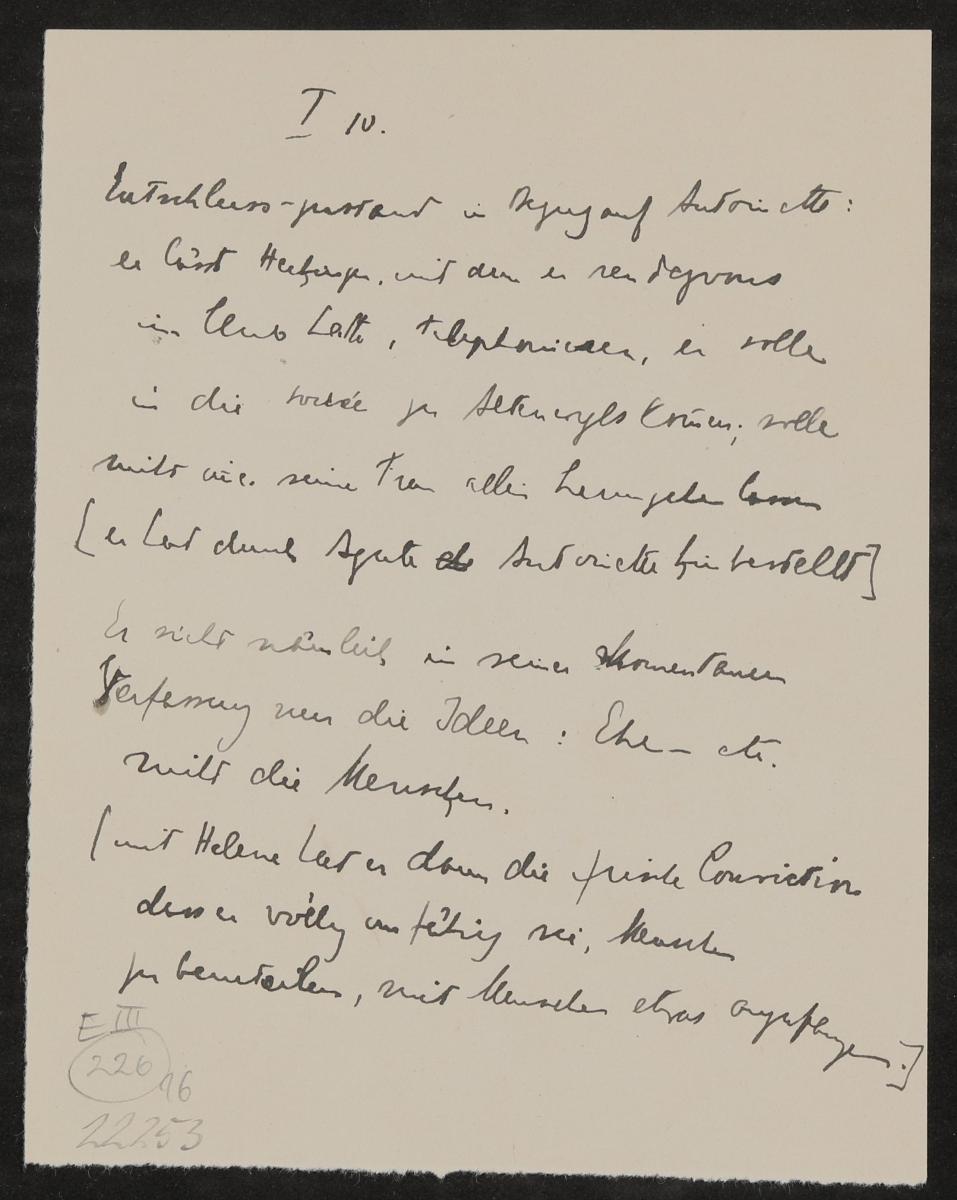 I 10.
Entschluss-zustand in Bezug auf Antoinette:
er lässt Hechingen, mit dem er rendezvous
im Club hatte, telephonieren, er solle
in die soirée zu Altenwyls kommen; solle
nicht seine Frau allein herumgehen lassen
[er hat durch Agathe Antoinette hinbestellt]
Er sieht nämlich in seiner momentanen
Verfassung nur die Ideen: Ehe – etc.
nicht die Menschen.
(mit Helene hat er dann die Conviction
dass er völlig unfähig sei, Menschen
zu beurteilen, mit Menschen etwas anzufangen.]
E III
226
16
22253